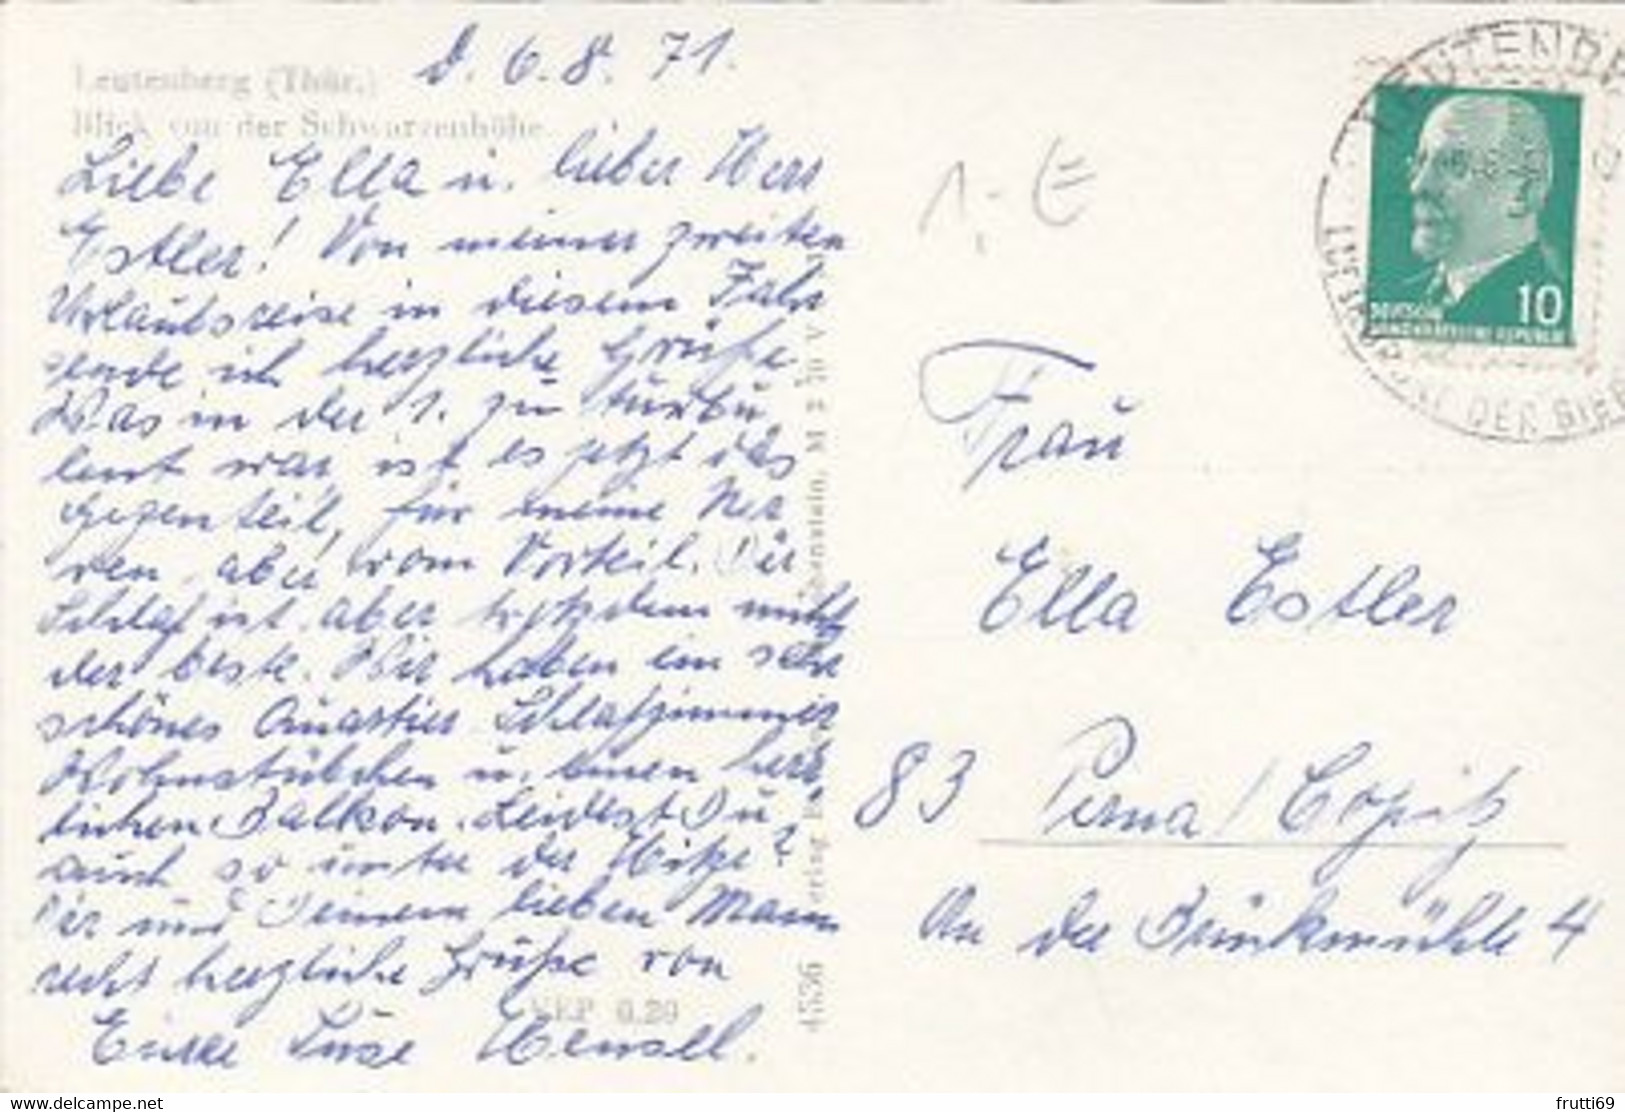 Leutenberg (Thür.)
Blick von der Schwarzenhöhe
D. 6.8.71.
Liebe Ella u. lieber Herr
Estler! Von meiner zweiten
Urlaubsreise in diesem Jahr
sende ich herzliche Grüße.
Was in der 1. zu turbu
lent war, ist es jetzt das
Gegenteil, für meine Ner
ven, aber vom Vorteil. Der
Schlaf ist aber trotzdem nicht
der beste. Wir haben ein sehr
schönes Quartier Schlafzimmer
Wohnstübchen u. einen herr
lichen Balkon. Leidest Du
auch so unter der Hitze?
Dir und Deinem lieben Mann
recht herzliche Grüße von
Eurer Luise Hensel.
VEP 0.20
4536
M 2 70 V
LEUTENBE
DER
10
DEUTSCHE
DEMOKRATISCHE REPUBLIK
1,- E
Frau
Ella Estler
83 Pirna / Copitz
An der Brünkmühle 4
https://www.delcampe.net
frutti69